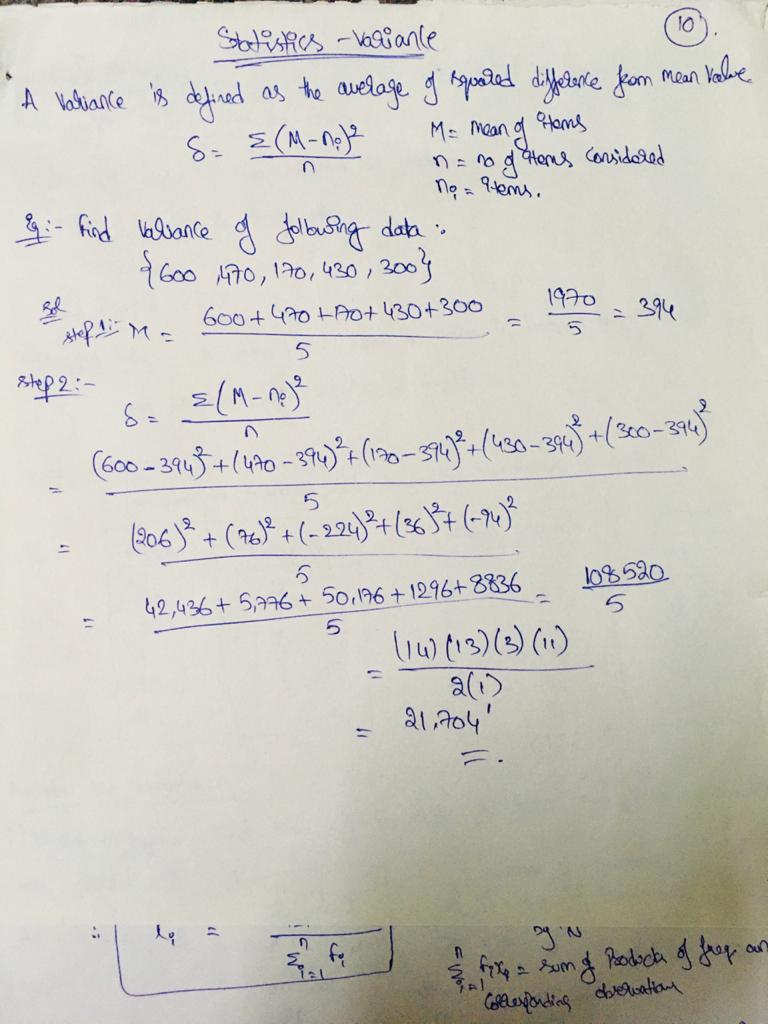 Statistics - Variance
10
A Variance is defined as the average of squared difference from mean value
δ = Σ(M-ni)²/n
M = mean of items
n = no of items considered
ni = items.
Eg:- Find variance of following data :
{600, 470, 170, 430, 300}
Sol
step 1:- M = (600+470+170+430+300)/5 = 1970/5 = 394
step 2:-
δ = Σ(M-ni)²/n
= ((600-394)²+(470-394)²+(170-394)²+(430-394)²+(300-394)²)/5
= ((206)²+(76)²+(-224)²+(36)²+(-94)²)/5
= (42,436+5,776+50,176+1296+8836)/5 = 108520/5
= (14)(13)(3)(11)/2(1)
= 21,704
=.
∴ = / Σⁿi=1 fi
Σⁿi=1 fixi = sum of Products of freq. an
Corresponding observations